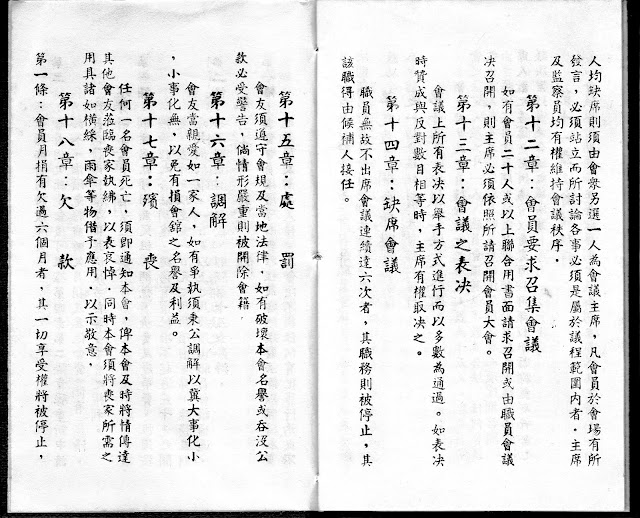 人均缺席則須由會眾另選一人為會議主席，凡會員於會場有所
發言，必須站立而所討論各事必須是屬於議程範圍內者．主席
及監察員均有權維持會議秩序．
第十二章：會員要求召集會議
如有會員二十人或以上聯合用書面請求召開或由職員會議
决召開，則主席必須依照所請召開會員大會。
第十三章：會議之表决
會議上所有表决以舉手方式進行而以多數為通過。如表决
時贊成與反對數目相等時，主席有權取决之。
第十四章：缺席會議
職員無故不出席會議連續達六次者，其職務則被停止，其
該職得由候補人接任。
第十五章：處罰
會友須遵守會規及當地法律，如有破壞本會名譽或吞沒公
款必受警告，倘情形嚴重則被開除會籍
第十六章：調解
會友當親愛如一家人，如有爭執須秉公調解以冀大事化小
，小事化無，以免有損會舘之名譽及利益。
第十七章：殯喪
任何一名會員死亡，須即通知本會，俾本會及時將情傳達
其他會友蒞臨喪家執紼，以表哀悼．同時本會須將喪家所需之
用具諸如橫綵，雨傘等物借予應用．以示敬意．
第十八章：欠款
第一條：會員月捐有欠過六個月者，其一切享受權將被停止，